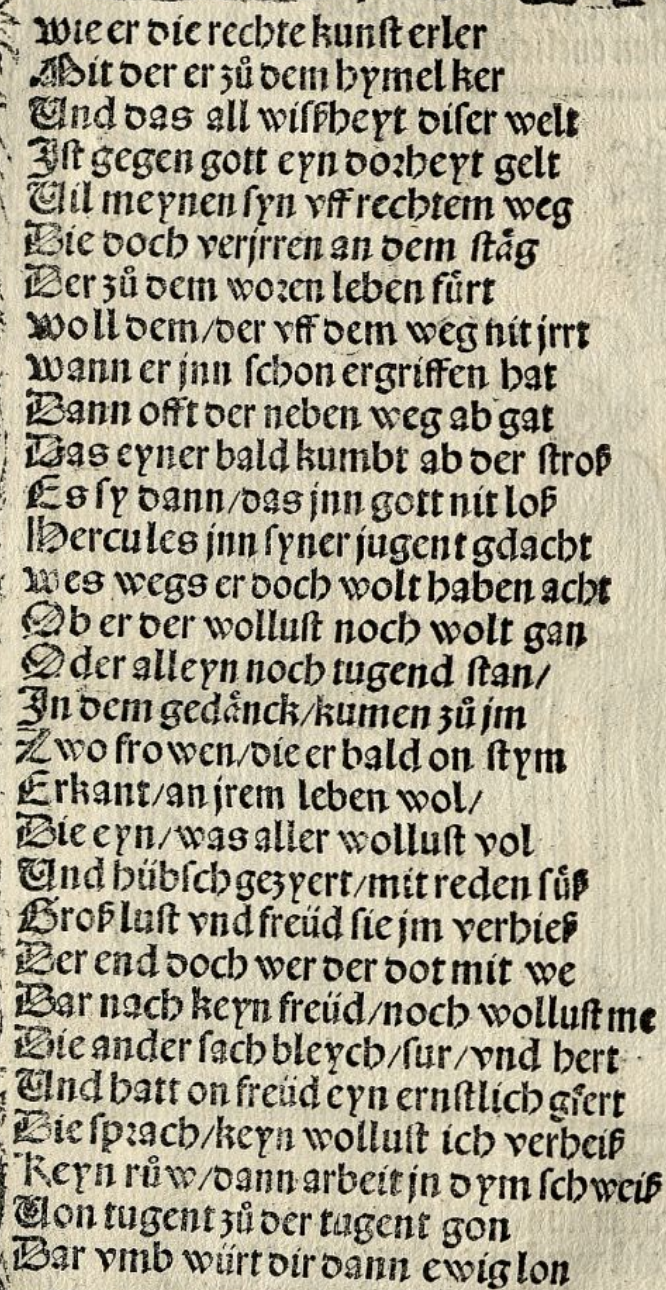 wie er die rechte kunst erler
Mit der er zů dem hymel ker
Und das all wißheyt diser welt
Ist gegen gott eyn dorheyt gelt
Vil meynen syn vff rechtem weg
Die doch verjrren an dem ståg
Der zů dem woren leben fůrt
woll dem/der vff dem weg nit jrrt
wann er jnn schon ergriffen hat
Dann offt der neben weg ab gat
Das eyner bald kumbt ab der stroß
Es sy dann/das jnn gott nit loß
Hercules jnn syner jugent gdacht
wes wegs er doch wolt haben acht
Ob er der wollust noch wolt gan
Oder alleyn noch tugend stan/
In dem gedånck/kumen zů jm
Zwo frowen/die er bald on stym
Erkant/an jrem leben wol/
Die eyn/was aller wollust vol
Und hübsch gezyert/mit reden sůß
Groß lust vnd freüd sie jm verhieß
Der end doch wer der dot mit we
Dar nach keyn freüd/noch wollust me
Die ander sach bleych/sur/vnd hert
Und hatt on freüd eyn ernstlich gfert
Die sprach/keyn wollust ich verheiß
Keyn růw/dann arbeit jn dym schweiß
Von tugent zů der tugent gon
Dar vmb würt dir dann ewig lon